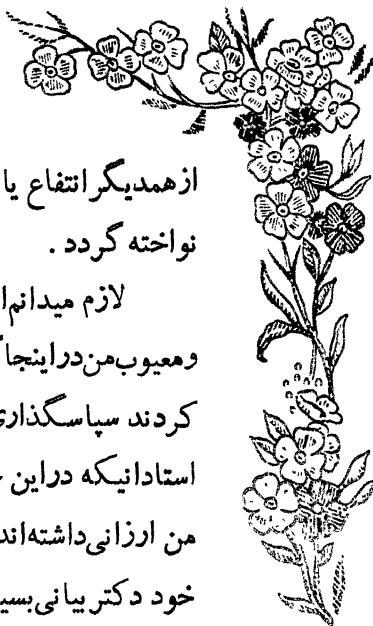 از همدیگر انتفاع یا
نواخته گردد .
لازم میدانم
ومعیوب من دراینجا
کردند سپاسگذاری
استادانیکه دراین
من ارزانی داشته‌اند
خود دکتر بیانی بسی